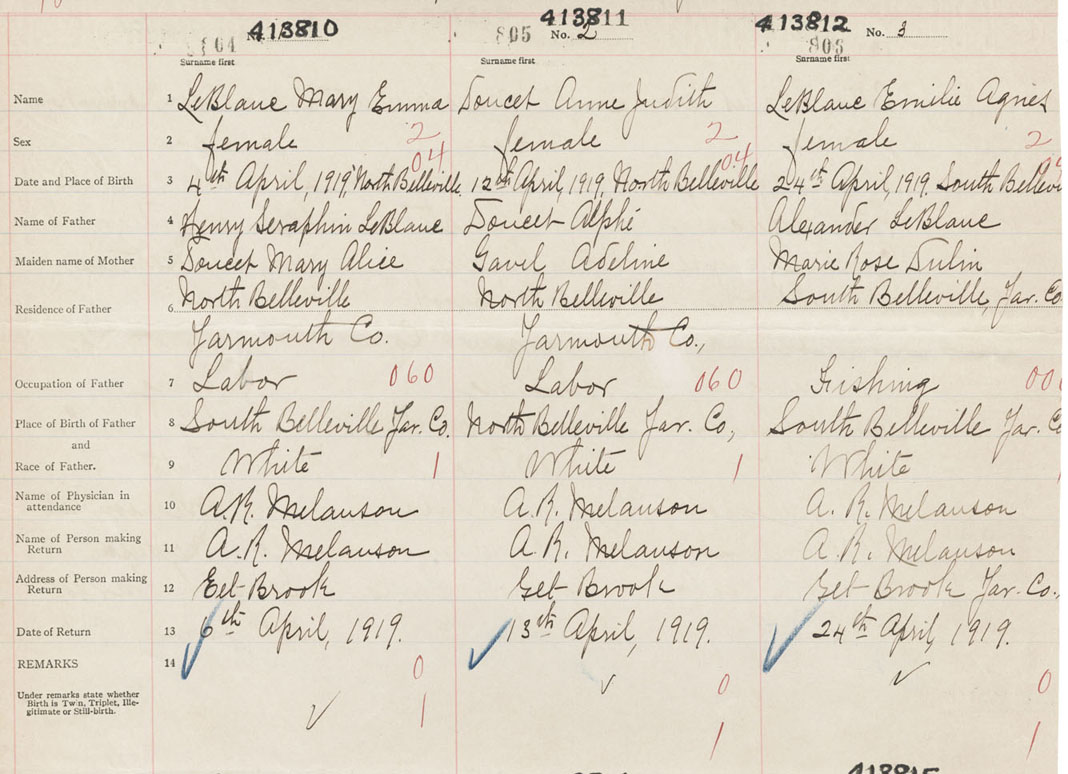 413810 413811 413812
804 No. 805 No. 2 806 No. 3
Surname first Surname first Surname first
Name 1 LeBlanc Mary Emma Doucet Anne Judith LeBlanc Emilie Agnes
Sex 2 female 2 female 2 female 2
04 04
Date and Place of Birth 3 4th April, 1919, North Belleville 12th April, 1919, North Belleville 24th April, 1919. South Bellevi
Name of Father 4 Henry Seraphin LeBlanc Doucet Alphé Alexander LeBlanc
Maiden name of Mother 5 Doucet Mary Alice Gavel, Adeline Marie Rose Dulin
Residence of Father 6 North Belleville North Belleville South Belleville, Yar. Co
Yarmouth Co. Yarmouth Co.,
Occupation of Father 7 Labor 060 Labor 060 Fishing 00
Place of Birth of Father 8 South Belleville Yar. Co. North Belleville Yar. Co., South Belleville Yar. C
and
Race of Father. 9 White 1 White 1 White
Name of Physician in
attendance 10 A.R. Melanson A.R. Melanson A. R. Melanson
Name of Person making
Return 11 A.R. Melanson A.R. Melanson A.R. Melanson
Address of Person making
Return 12 Eel Brook Eel Brook Eel Brook Yar. Co.,
Date of Return 13 6th April, 1919. 13th April, 1919. 24th April, 1919.
REMARKS 14 0 0 0
Under remarks state whether
Birth is Twin, Triplet, Ille-
gitimate or Still-birth. 1 1 1